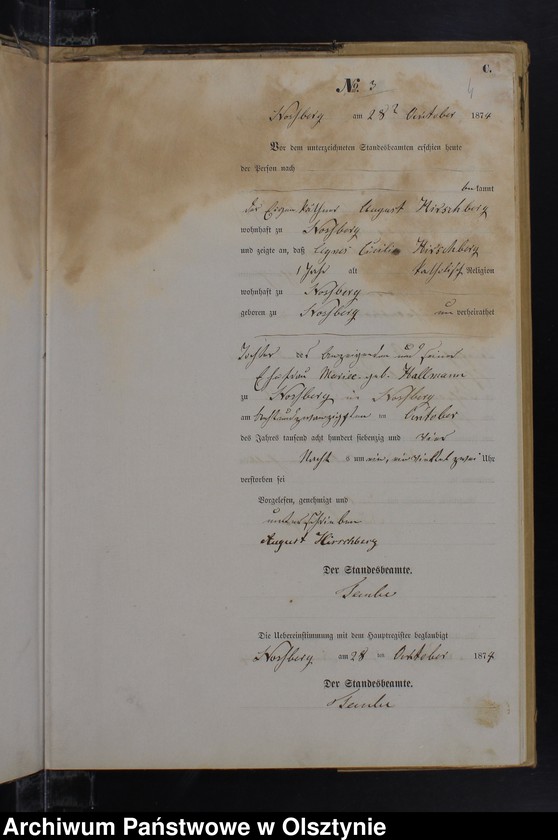 C.
No. 3
4
Noßberg am 28ᵗ October 1874
Vor dem unterzeichneten Standesbeamten erschien heute
der Person nach
bekannt
der Eigenkäthner August Hirschberg
wohnhaft zu Noßberg
und zeigte an, daß Agnes Cäcilie Hirschberg
1 Jahr alt katholisch Religion
wohnhaft zu Noßberg
geboren zu Noßberg unverheirathet
Tochter des Anzeigenden und seiner
Ehefrau geb. Hallmann
zu Noßberg in Noßberg
am achtundzwanzigsten ten October
des Jahres tausend acht hundert siebenzig und vier
Nachts um ein, ein viertel zwei Uhr
verstorben sei
Vorgelesen, genehmigt und
unterschrieben
August Hirschberg
Der Standesbeamte.
Die Uebereinstimmung mit dem Hauptregister beglaubigt
Noßberg am 28 ten October 1874
Der Standesbeamte.
Archiwum Państwowe w Olsztynie